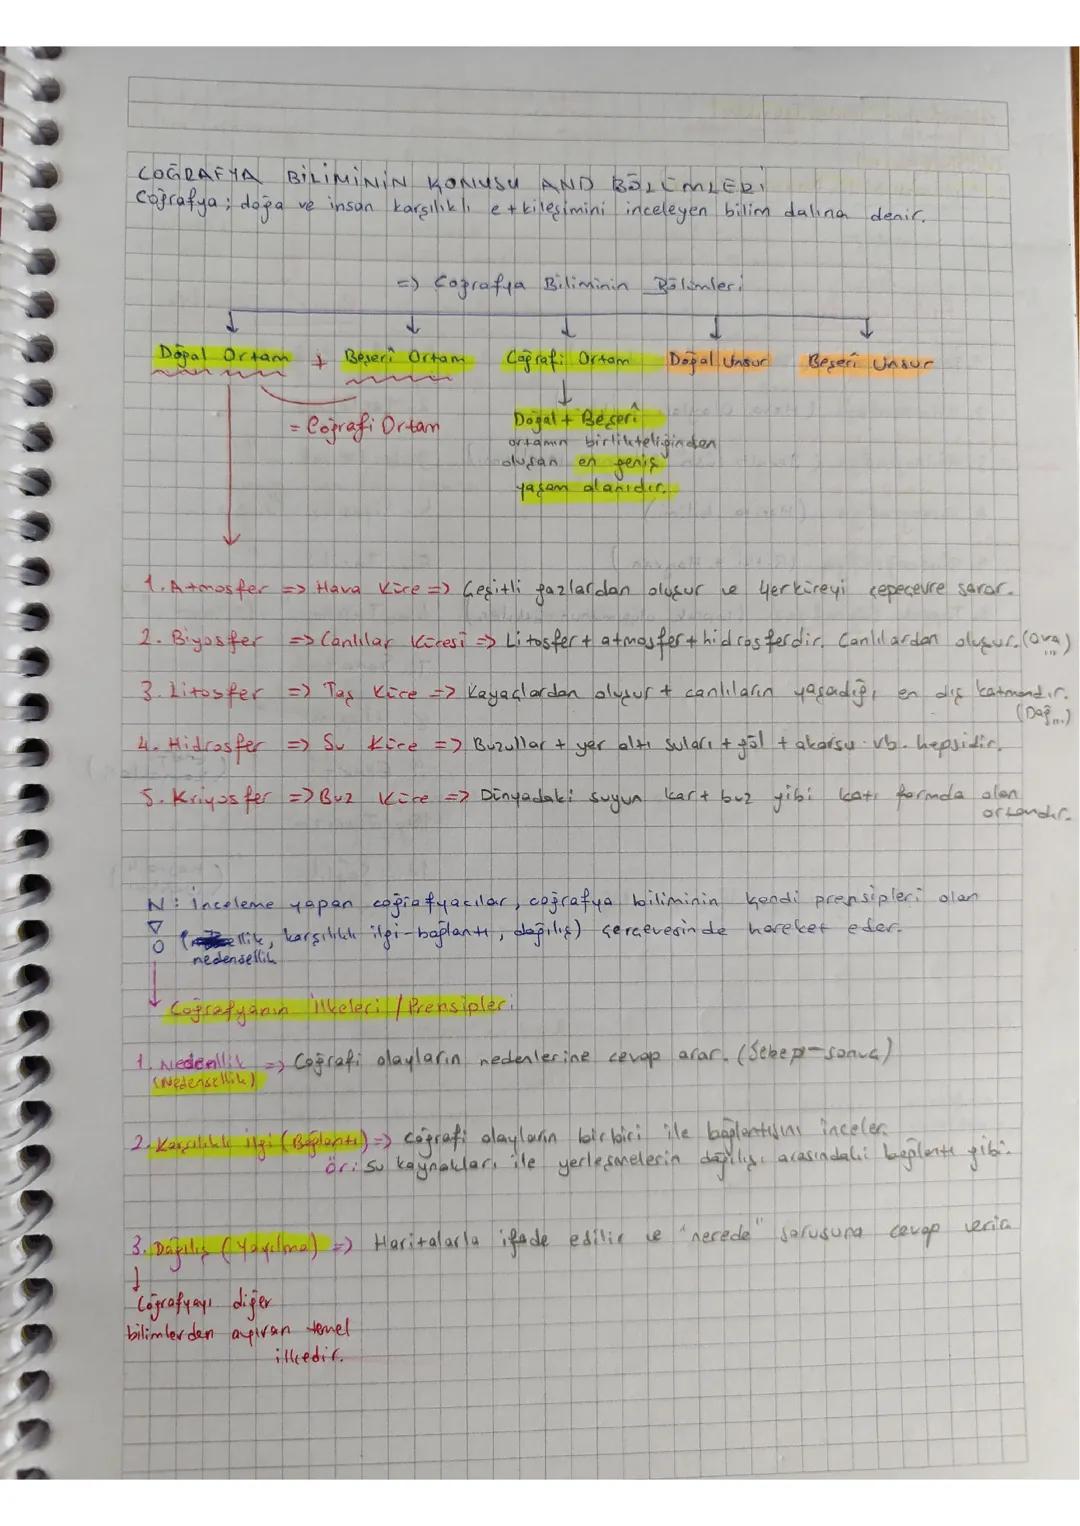 COĞRAFYA BİLİMİNİN KONUSU AND BÖLÜMLERİ
Coğrafya; doğa ve insan karşılıklı etkileşimini inceleyen bilim dalına denir.
=> Coğrafya Biliminin Bölümleri
Doğal Ortam + Beşerî Ortam Coğrafi Ortam Doğal Unsur Beşerî Unsur
= Coğrafi Ortam
Doğal + Beşerî
ortamın birlikteliğinden
oluşan en geniş
yaşam alanıdır.
1. Atmosfer => Hava Küre => Çeşitli gazlardan oluşur ve Yerküreyi çepeçevre sarar.
2. Biyosfer => Canlılar Küresi => Litosfer + atmosfer + hidrosferdir. Canlılardan oluşur. (Ova ...)
3. Litosfer => Taş Küre => Kayaçlardan oluşur + canlıların yaşadığı en dış katmandır.
(Dağ...)
4. Hidrosfer => Su Küre => Buzullar + yer altı suları + göl + akarsu vb. hepsidir.
5. Kriyosfer => Buz Küre => Dünyadaki suyun kar + buz gibi katı formda olan
ortamdır.
N: İnceleme yapan coğrafyacılar, coğrafya biliminin kendi prensipleri olan
O (ellik, karşılıklı ilgi-bağlantı, dağılış) çerçevesinde hareket eder.
nedensellik
Coğrafyanın İlkeleri / Prensipleri
1. Nedenllik => Coğrafi olayların nedenlerine cevap arar. (Sebep-sonuç)
(Nedensellik)
2. Karşılıklı ilgi (Bağlantı) => Coğrafi olayların birbiri ile bağlantısını inceler.
ör: Su kaynakları ile yerleşmelerin dağılışı arasındaki bağlantı gibi.
3. Dağılış (Yayılma) => Haritalarla ifade edilir ve "nerede" sorusuna cevap verir
Coğrafyayı diğer
bilimlerden ayıran temel
ilkedir.